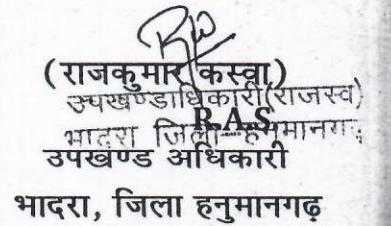 (राजकुमार कस्वा)
उपखण्डाधिकारी(राजस्व)
R.A.S.
भादरा जिला-हनुमानगढ़
उपखण्ड अधिकारी
भादरा, जिला हनुमानगढ़